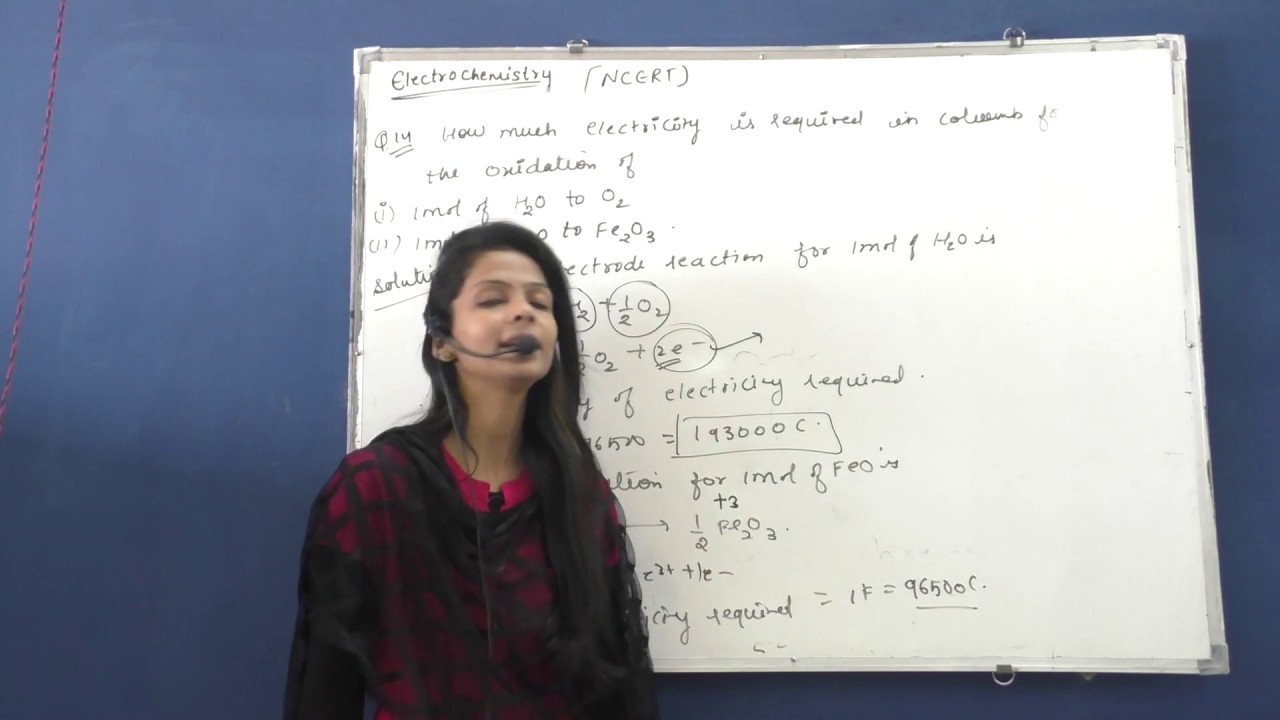 Electrochemistry (NCERT)
Q.14 How much electricity is required in coloumb
the oxidation of
(i) 1mol of H₂O to O₂
(ii) to Fe₂O₃.
reaction for 1mol of H₂O is
+ ½O₂
½O₂ + 2e⁻ →
of electricity required.
96500 = 193000C.
for 1mol of FeO is
+3
→ ½ Fe₂O₃.
3+ + 1e⁻
required = 1F = 96500C.